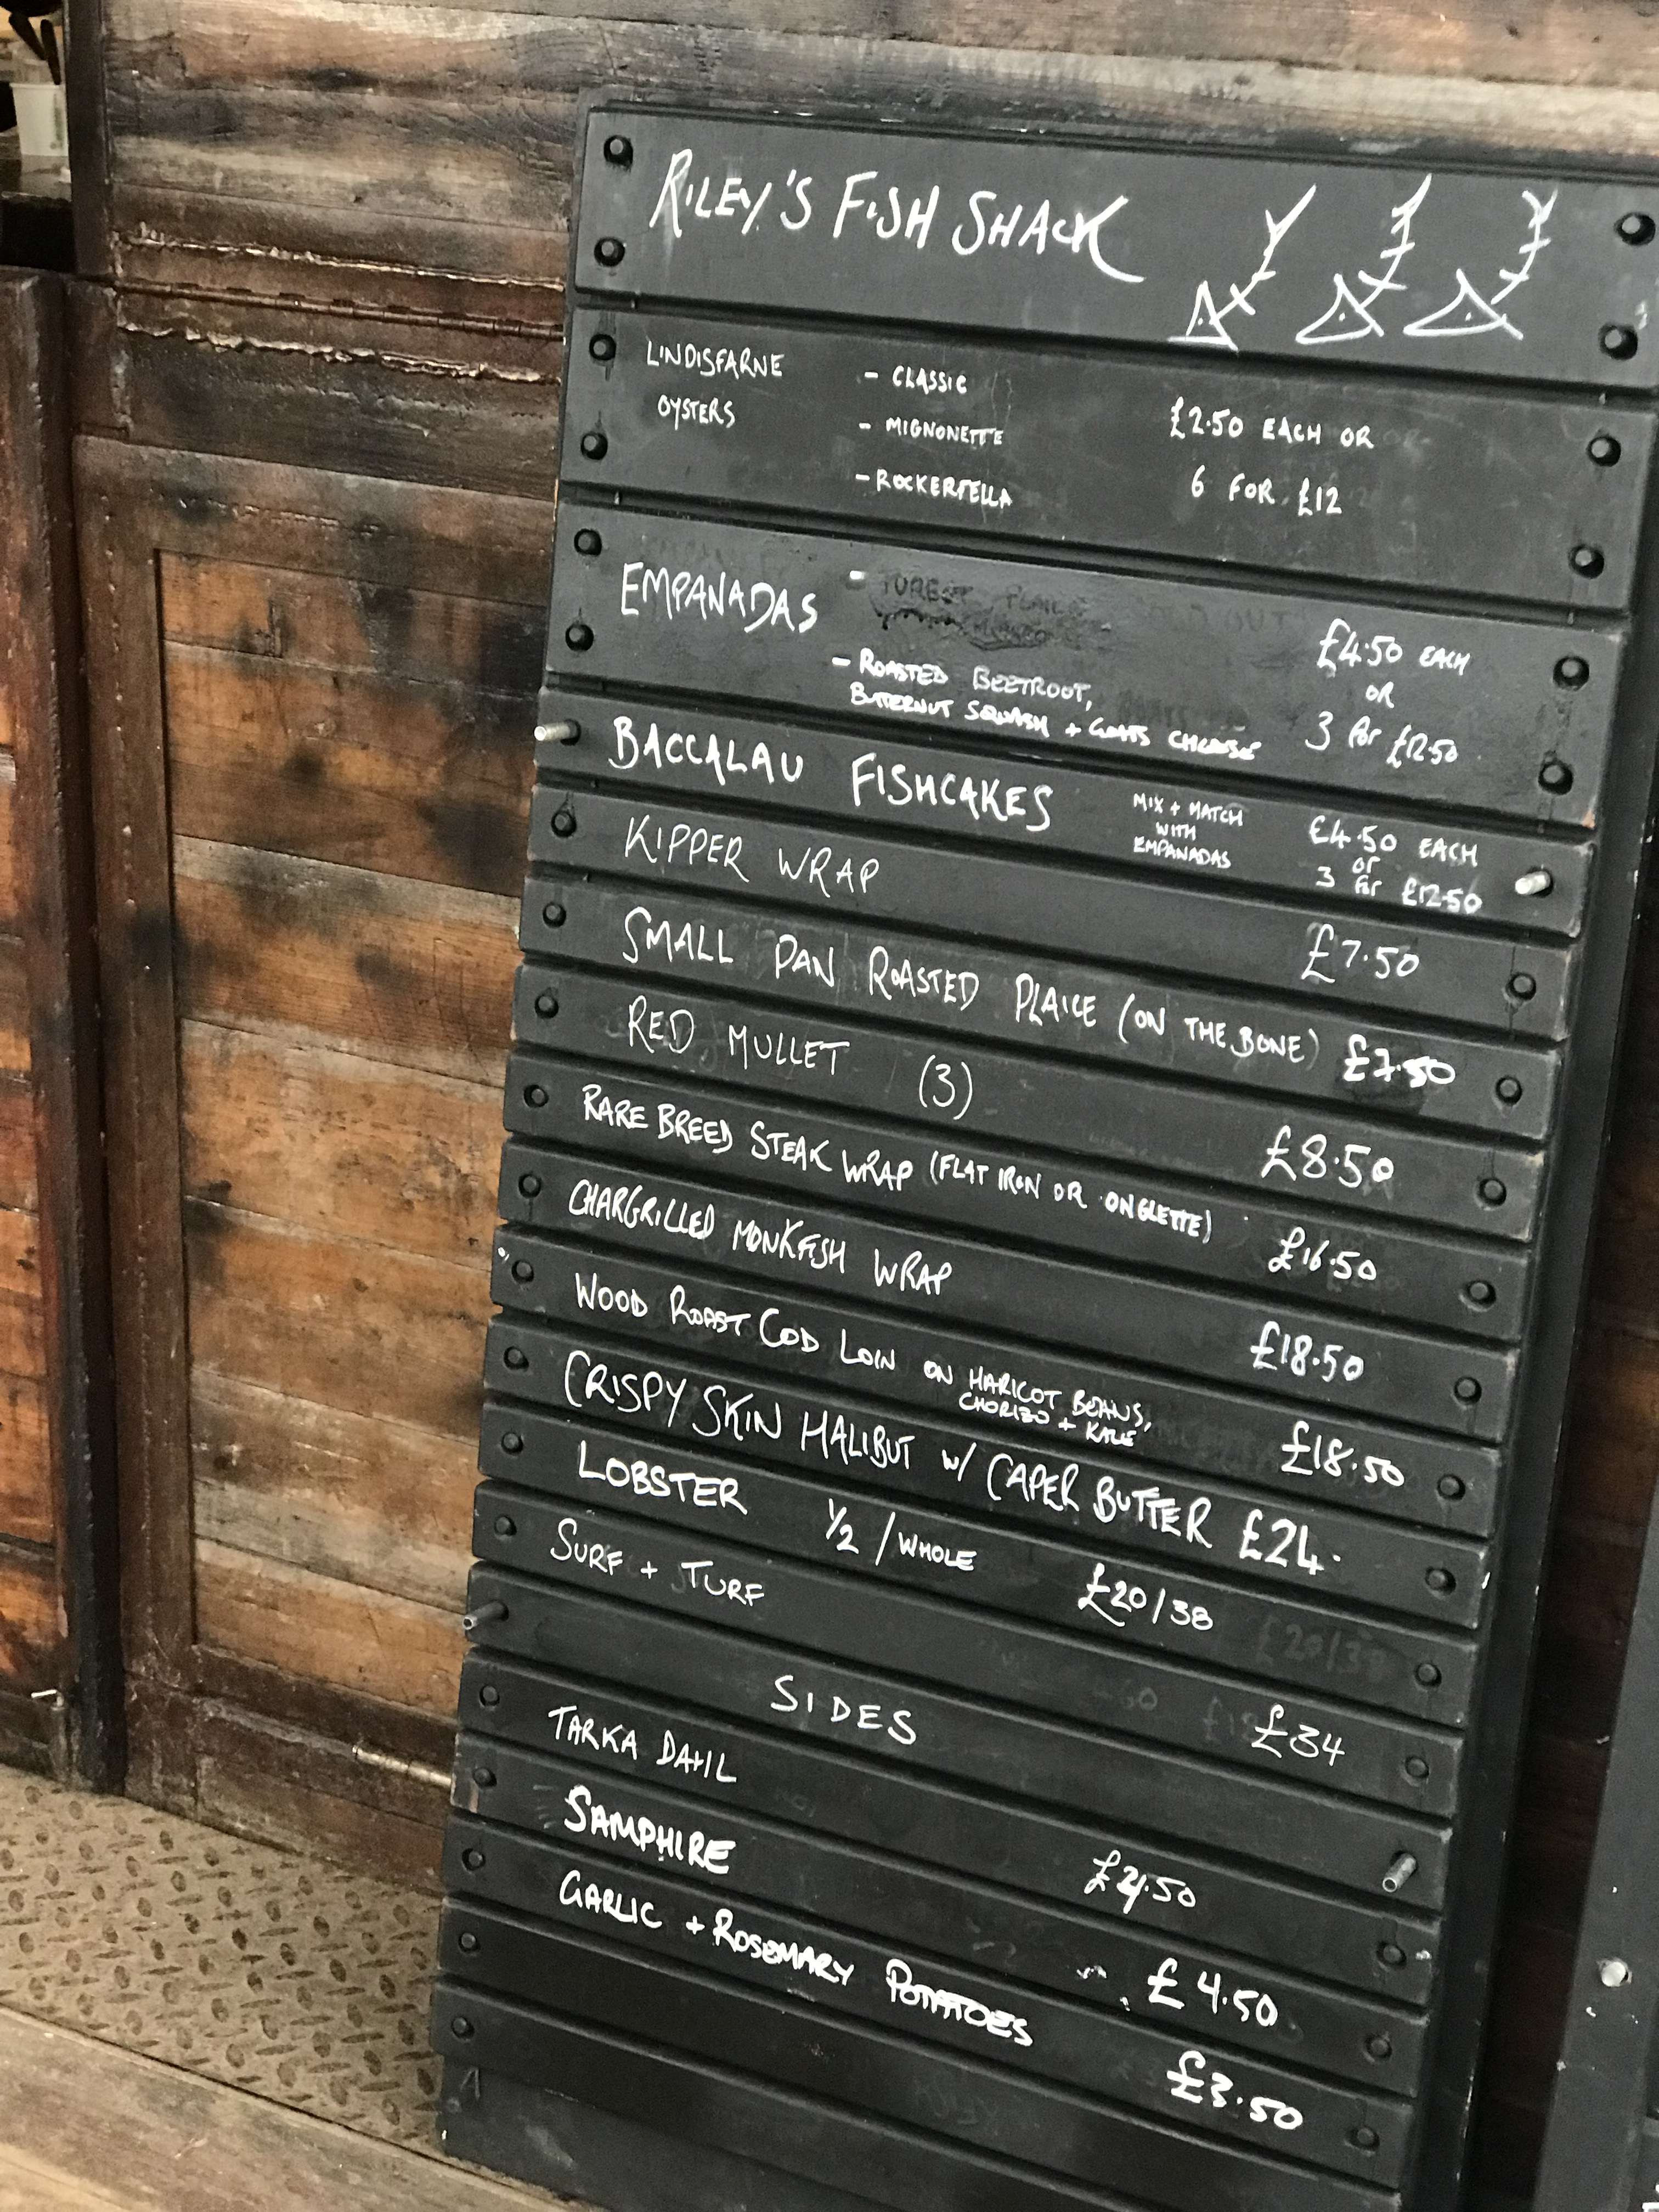 RILEY'S FISH SHACK
LINDISFARNE OYSTERS
- CLASSIC
- MIGNONETTE
- ROCKERFELLA
£2.50 EACH OR
6 FOR £12
EMPANADAS
- ROASTED BEETROOT,
BUTTERNUT SQUASH + GOATS CHEESE
£4.50 EACH
OR
3 for £12.50
BACCALAU FISHCAKES
MIX + MATCH
WITH
EMPANADAS
£4.50 EACH
or
3 for £12.50
KIPPER WRAP £7.50
SMALL PAN ROASTED PLAICE (ON THE BONE) £7.50
RED MULLET (3) £8.50
RARE BREED STEAK WRAP (FLAT IRON OR ONGLETTE) £16.50
CHARGRILLED MONKFISH WRAP £18.50
WOOD ROAST COD LOIN ON HARICOT BEANS,
CHORIZO + KALE £18.50
CRISPY SKIN HALIBUT W/ CAPER BUTTER £24.
LOBSTER 1/2 / WHOLE £20/38
SURF + TURF £34
SIDES
TARKA DAHL £4.50
SAMPHIRE £4.50
GARLIC + ROSEMARY POTATOES £3.50